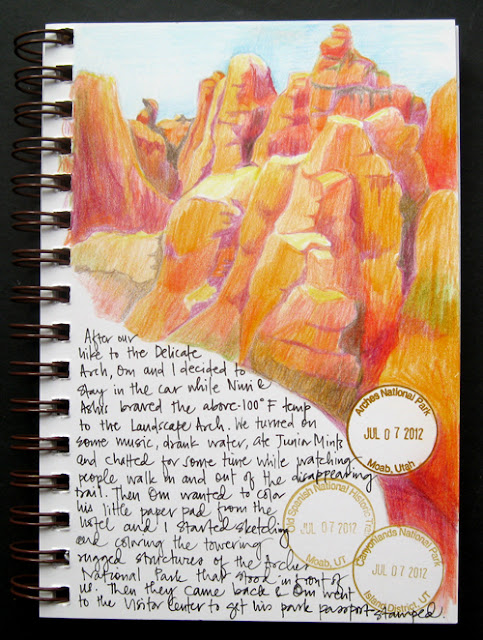 After our
hike to the Delicate
Arch, Om and I decided to
stay in the car while Nini &
Ashis braved the above-100°F temp
to the Landscape Arch. We turned on
some music, drank water, ate Junior Mints
and chatted for some time while watching
people walk in and out of the disappearing
trail. Then Om wanted to color
his little paper pad from the
hotel and I started sketching
and coloring the towering
rugged structures of the Arches
National Park that stood in front of
us. Then they came back & Om went
to the Visitor Center to get his park passport stamped.
Arches National Park
JUL 07 2012
Moab, Utah
Old Spanish National Historic Trail
JUL 07 2012
Moab, UT
Canyonlands National Park
JUL 07 2012
Island District, UT